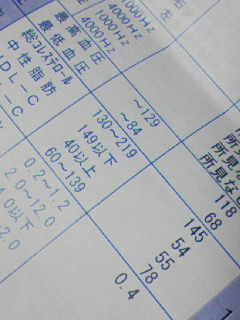 右
1000Hz
4000Hz
左
1000Hz
4000Hz
所見な
所見な
所見なし
最高血圧 ～129 118
最低血圧 ～84 68
総コレステロール 130～219 145
中性脂肪 149以下 54
DL-C 40以上 55
L-C 60～139 78
0.2～1.2 0.4
2.0～12.0
0以下
2.0